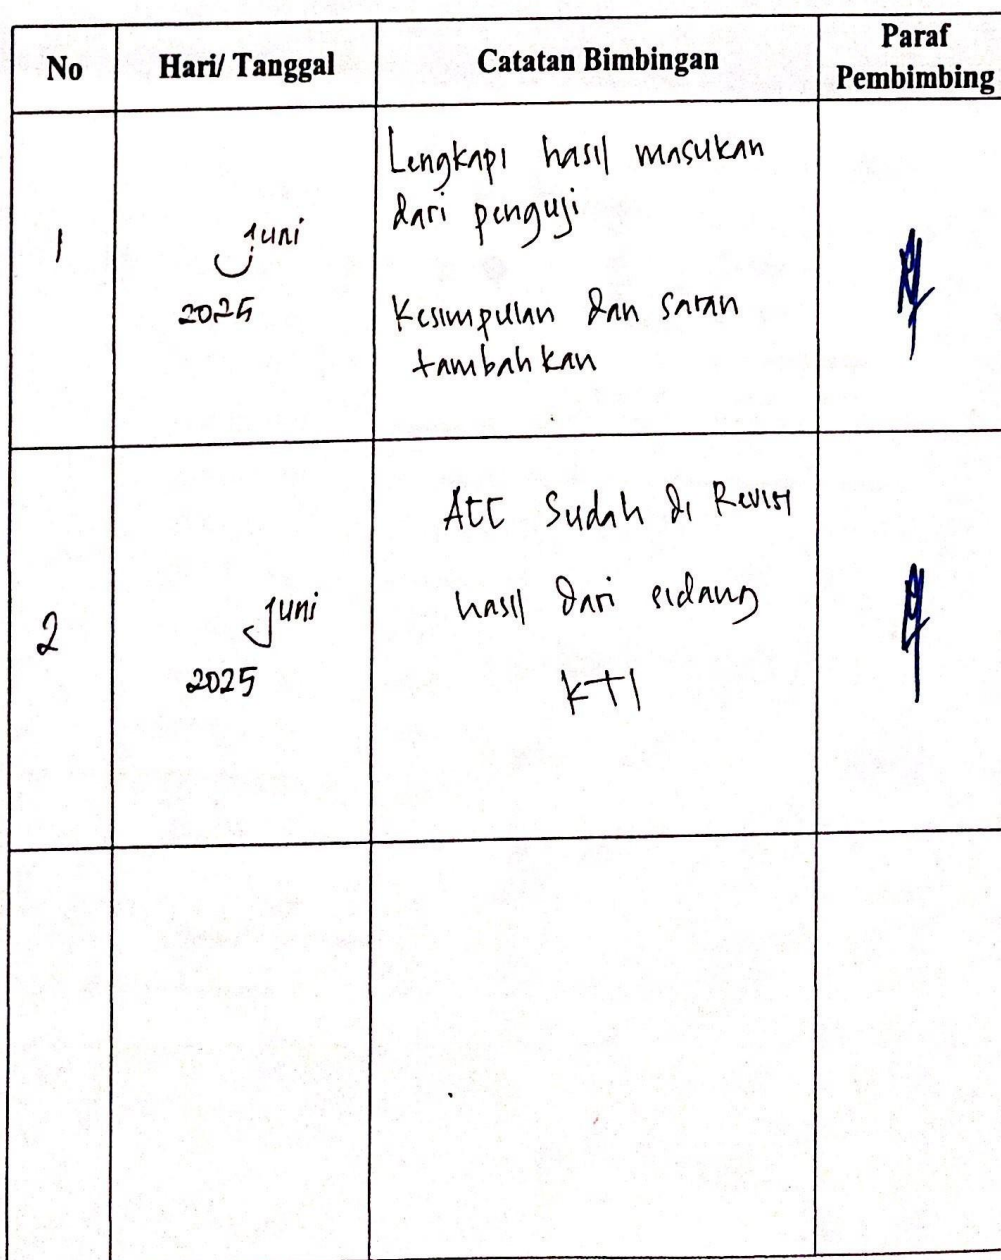 No Hari/ Tanggal Catatan Bimbingan Paraf
Pembimbing
1
Juni
2025
Lengkapi hasil masukan
dari penguji
Kesimpulan dan saran
tambahkan
2
Juni
2025
Acc Sudah di Revisi
hasil dari sidang
KTI